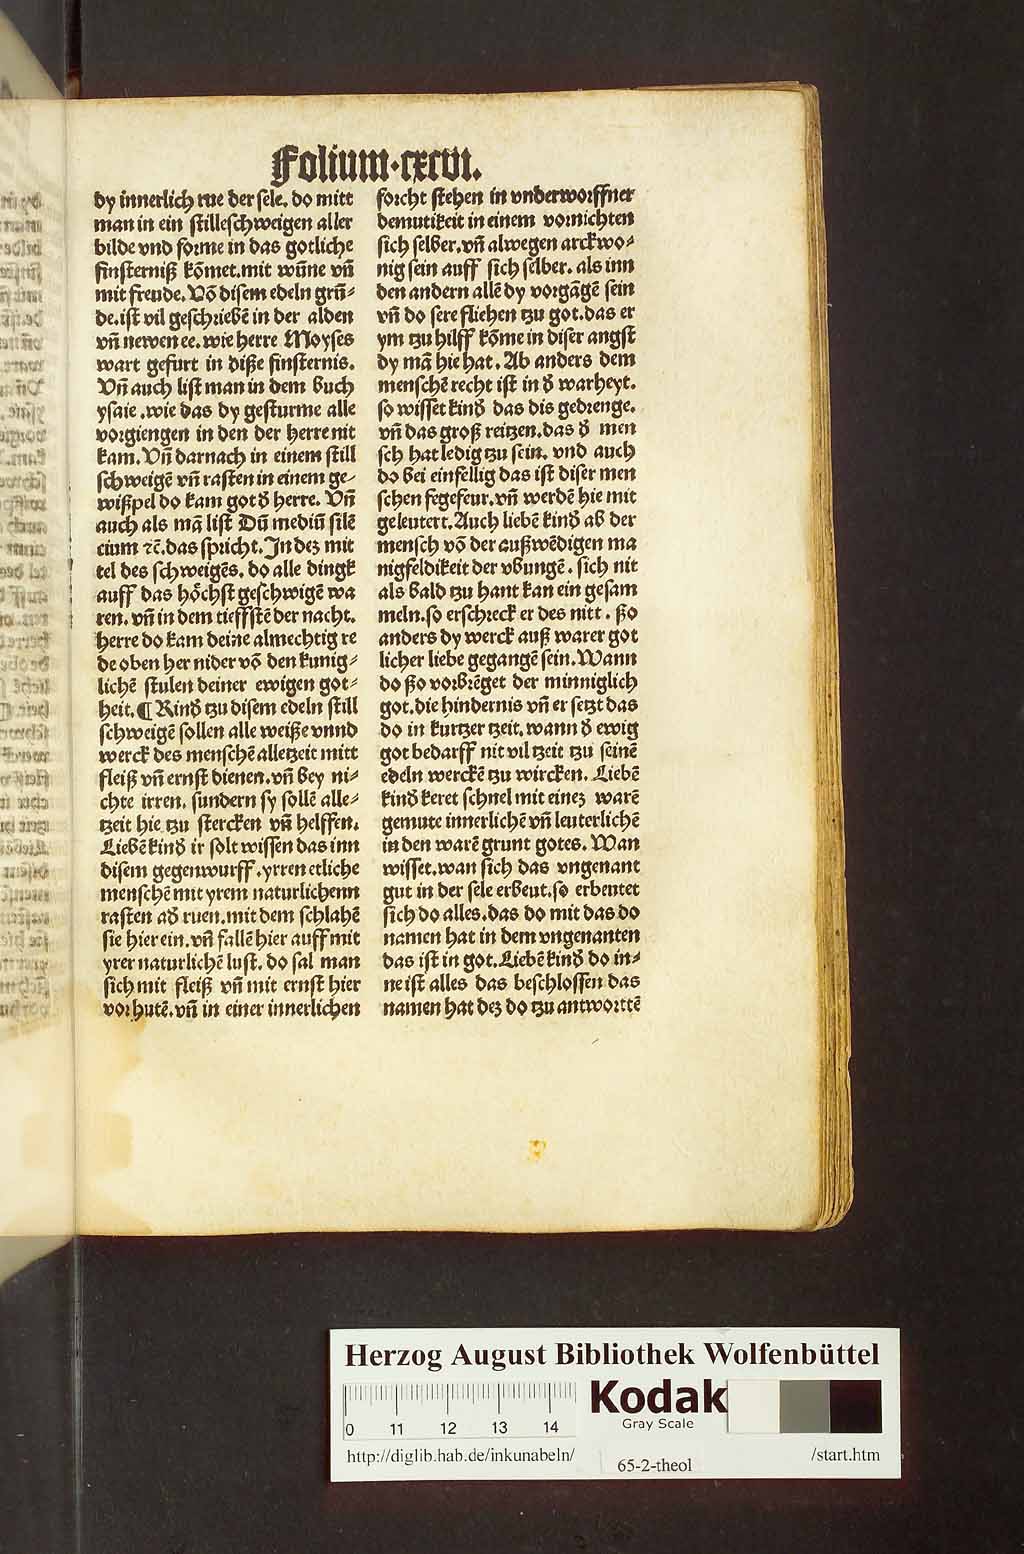 Folium·cxcvi.
dy innerlich rue der sele. do mitt
man in ein stilleschweigen aller
bilde vnd forme in das gotliche
finsterniß kõmet.mit wũne vñ
mit freude. Võ disem edeln grũ⸗
de.ist vil geschriebẽ in der alden
vñ newen ee. wie herre Moyses
wart gefurt in diße finsternis.
Vñ auch list man in dem buch
ysaie .wie das dy gesturme alle
vorgiengen in den der herre nit
kam. Vñ darnach in einem still
schweigẽ vñ rasten in einem ge⸗
wißpel do kam got ð herre. Vñ
auch als mã list Dũ mediũ silẽ
cium ⁊c̃.das spricht. In deꝫ mit
tel des schweigẽs. do alle dingk
auff das hȯchst geschwigẽ wa
ren. vñ in dem tieffstẽ der nacht.
herre do kam deine almechtig re
de oben her nider võ den kunig⸗
lichẽ stulen deiner ewigen got⸗
heit. ¶ Kinð tzu disem edeln still
schweigẽ sollen alle weiße vnnd
werck des menschẽ alletzeit mitt
fleiß vñ ernst dienen. vñ bey ni⸗
chte irren. sundern sy sollẽ alle⸗
tzeit hie tzu stercken vñ helffen.
Liebẽ kinð ir solt wissen das inn
disem gegenwurff .yrren etliche
menschẽ mit yrem naturlichenn
rasten að ruen.mit dem schlahẽ
sie hier ein. vñ fallẽ hier auff mit
yrer naturlichẽ lust. do sal man
sich mit fleiß vñ mit ernst hier
vor hutẽ. vñ in einer innerlichen
forcht stehen in vnderworffner
demutikeit in einem vornichten
sich selber.vñ alwegen arckwo⸗
nig sein auff sich selber. als inn
den andern allẽ dy vorgãgẽ sein
vñ do sere fliehen tzu got.das er
ym tzu hilff kõme in diser angst
dy mã hie hat. Ab anders dem
menschẽ recht ist in ð warheyt.
so wisset kinð das dis gedrenge.
vñ das groß reitzen.das ð men
sch hat ledig tzu sein. vnd auch
do bei einfellig das ist diser men
schen fegefeur.vñ werdẽ hie mit
geleutert. Auch liebẽ kinð ab der
mensch võ der außwẽdigen ma
nigfeldikeit der vbungẽ. sich nit
als bald tzu hant kan ein gesam
meln.so erschreck er des nitt. ßo
anders dy werck auß warer got
licher liebe gegangẽ sein. Wann
do ßo vorbrẽget der minniglich
got.die hindernis vñ er setzt das
do in kurtzer tzeit. wann ð ewig
got bedarff nit vil tzeit tzu seinẽ
edeln werckẽ tzu wircken. Liebẽ
kinð keret schnel mit eineꝫ warẽ
gemute innerlichẽ vñ leuterlichẽ
in den warẽ grunt gotes. Wan
wisset.wan sich das vngenant
gut in der sele erbeut.so erbeutet
sich do alles.das do mit das do
namen hat in dem vngenanten
das ist in got. Liebẽ kinð do in⸗
ne ist alles das beschlossen das
namen hat deꝫ do tzu antworttẽ
Herzog August Bibliothek Wolfenbüttel
0 11 12 13 14
Kodak
Gray Scale
http://diglib.hab.de/inkunabeln/ 65-2-theol /start.htm